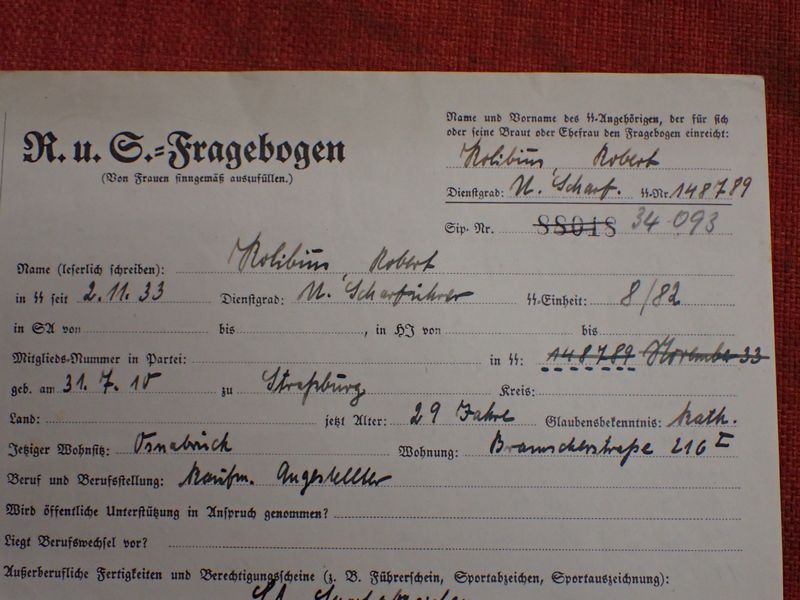 Name und Vorname des SS-Angehörigen, der für sich
oder seine Braut oder Ehefrau den Fragebogen einreicht:
R. u. S.=Fragebogen
(Von Frauen sinngemäß auszufüllen.)
Kolibius, Robert
Dienstgrad: U. Scharf. SS-Nr. 148789
Sip. Nr. 88018 34 093
Name (leserlich schreiben): Kolibius, Robert
in SS seit 2.11.33 Dienstgrad: U. Scharführer SS-Einheit: 8/82
in SA von bis , in HJ von bis
Mitglieds-Nummer in Partei: in SS: 148789 November 33
geb. am 31.7.10 zu Straßburg Kreis:
Land: jetzt Alter: 29 Jahre Glaubensbekenntnis: Kath.
Jetziger Wohnsitz: Osnabrück Wohnung: Bramscherstraße 216 I
Beruf und Berufsstellung: Kaufm. Angestellter
Wird öffentliche Unterstützung in Anspruch genommen?
Liegt Berufswechsel vor?
Außerberufliche Fertigkeiten und Berechtigungsscheine (z. B. Führerschein, Sportabzeichen, Sportauszeichnung):